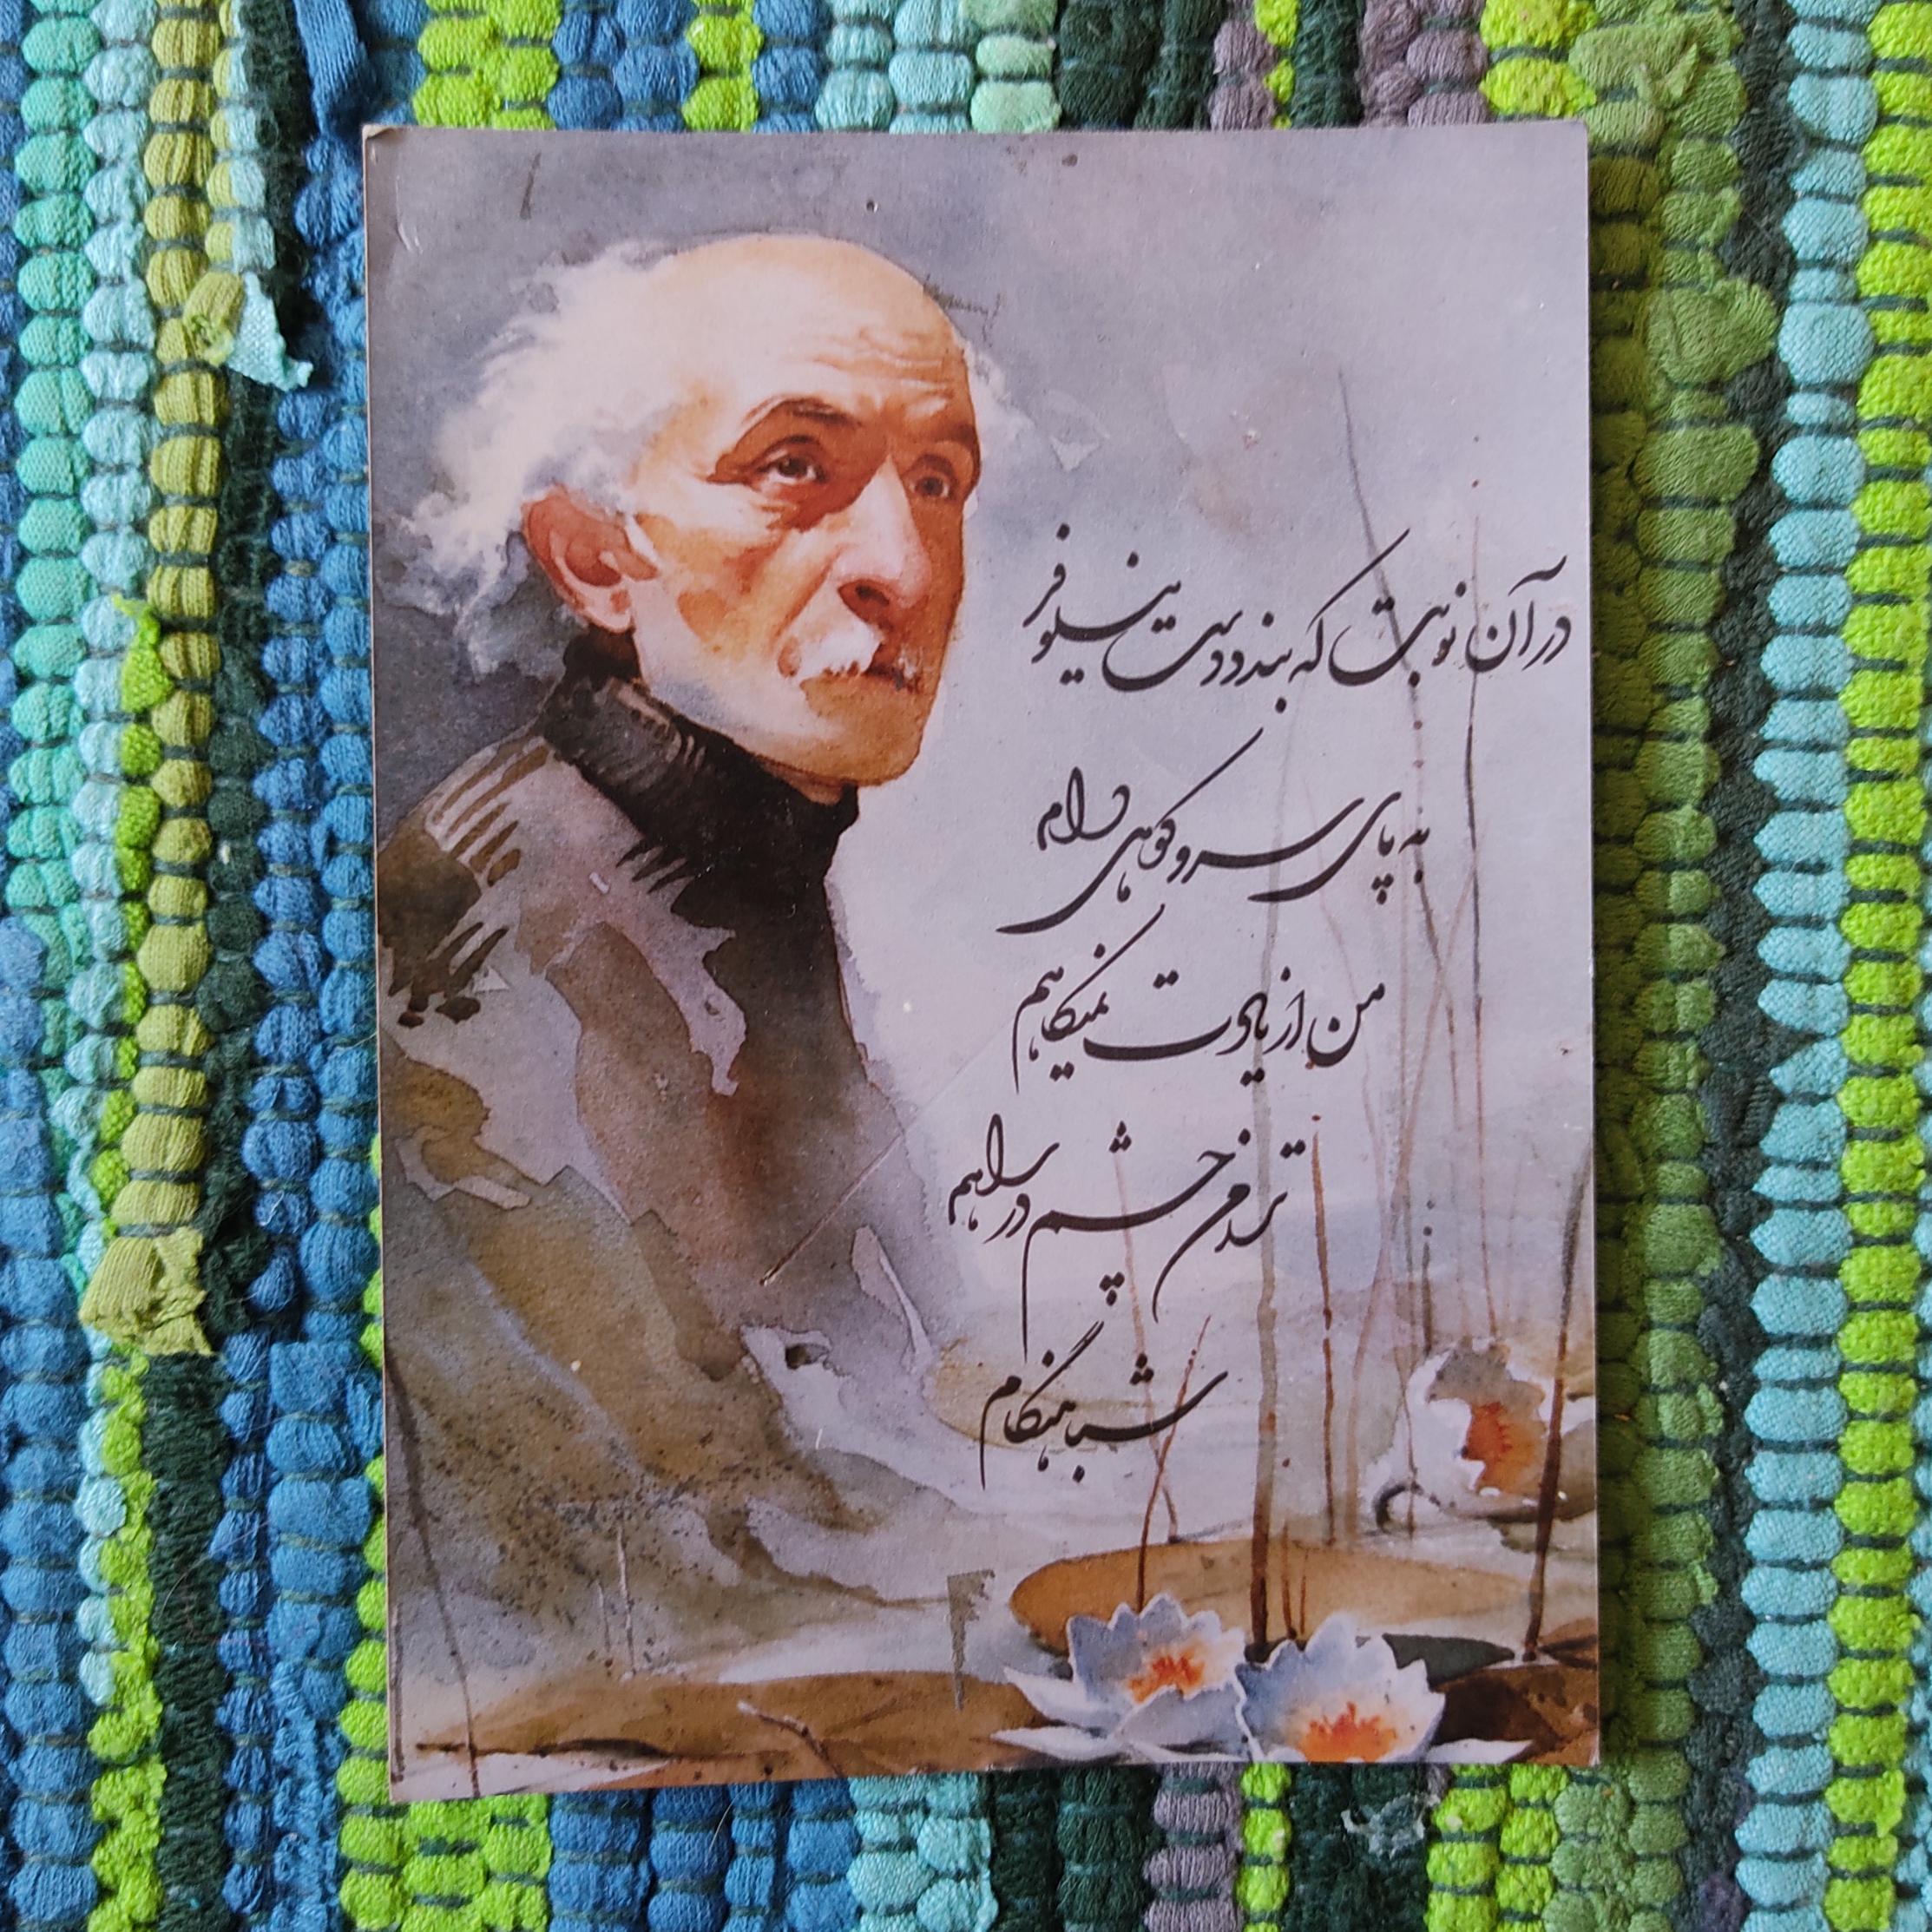 در آن نوبت که بندد دست نیلوفر
به پای سرو کوهی دام
من از یادت نمیکاهم
ترا من چشم در راهم
شباهنگام